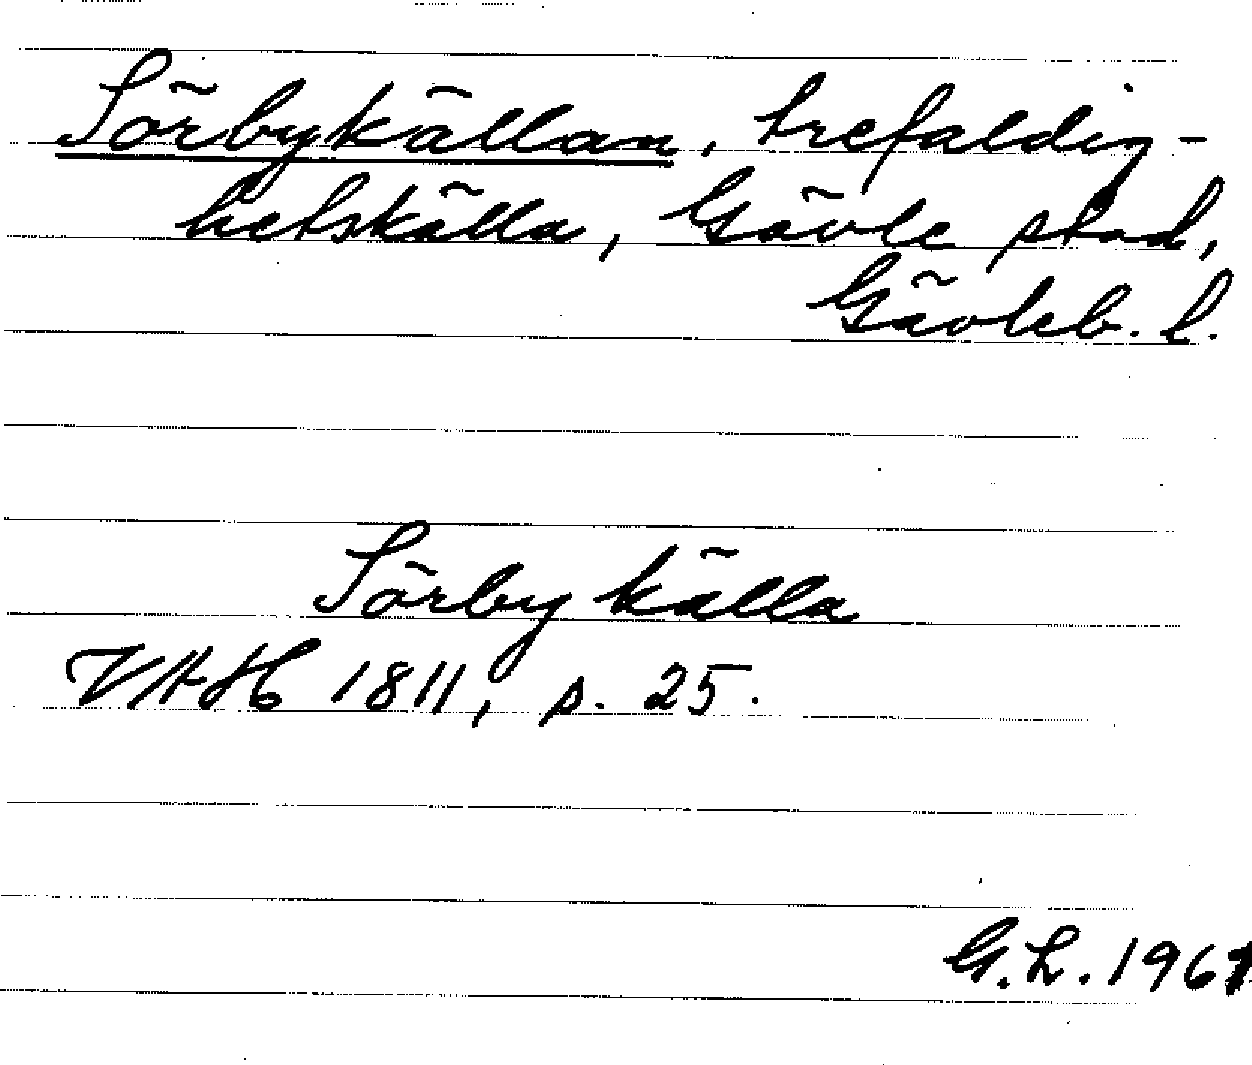 Sörbykällan, trefaldig-
hetskälla, Gävle stad,
Gävleb. l.
Sörby källa
VAH 1811, p. 25.
G. L. 1961